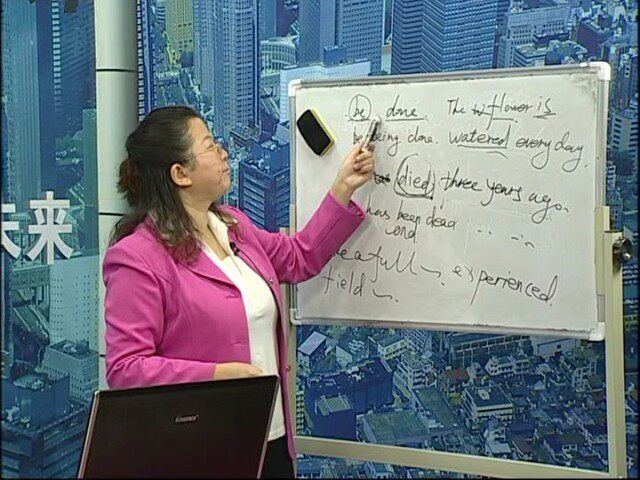 be done The flower is
being done. watered every day.
died three years ago.
has been dead
and
a full experienced
field
未来